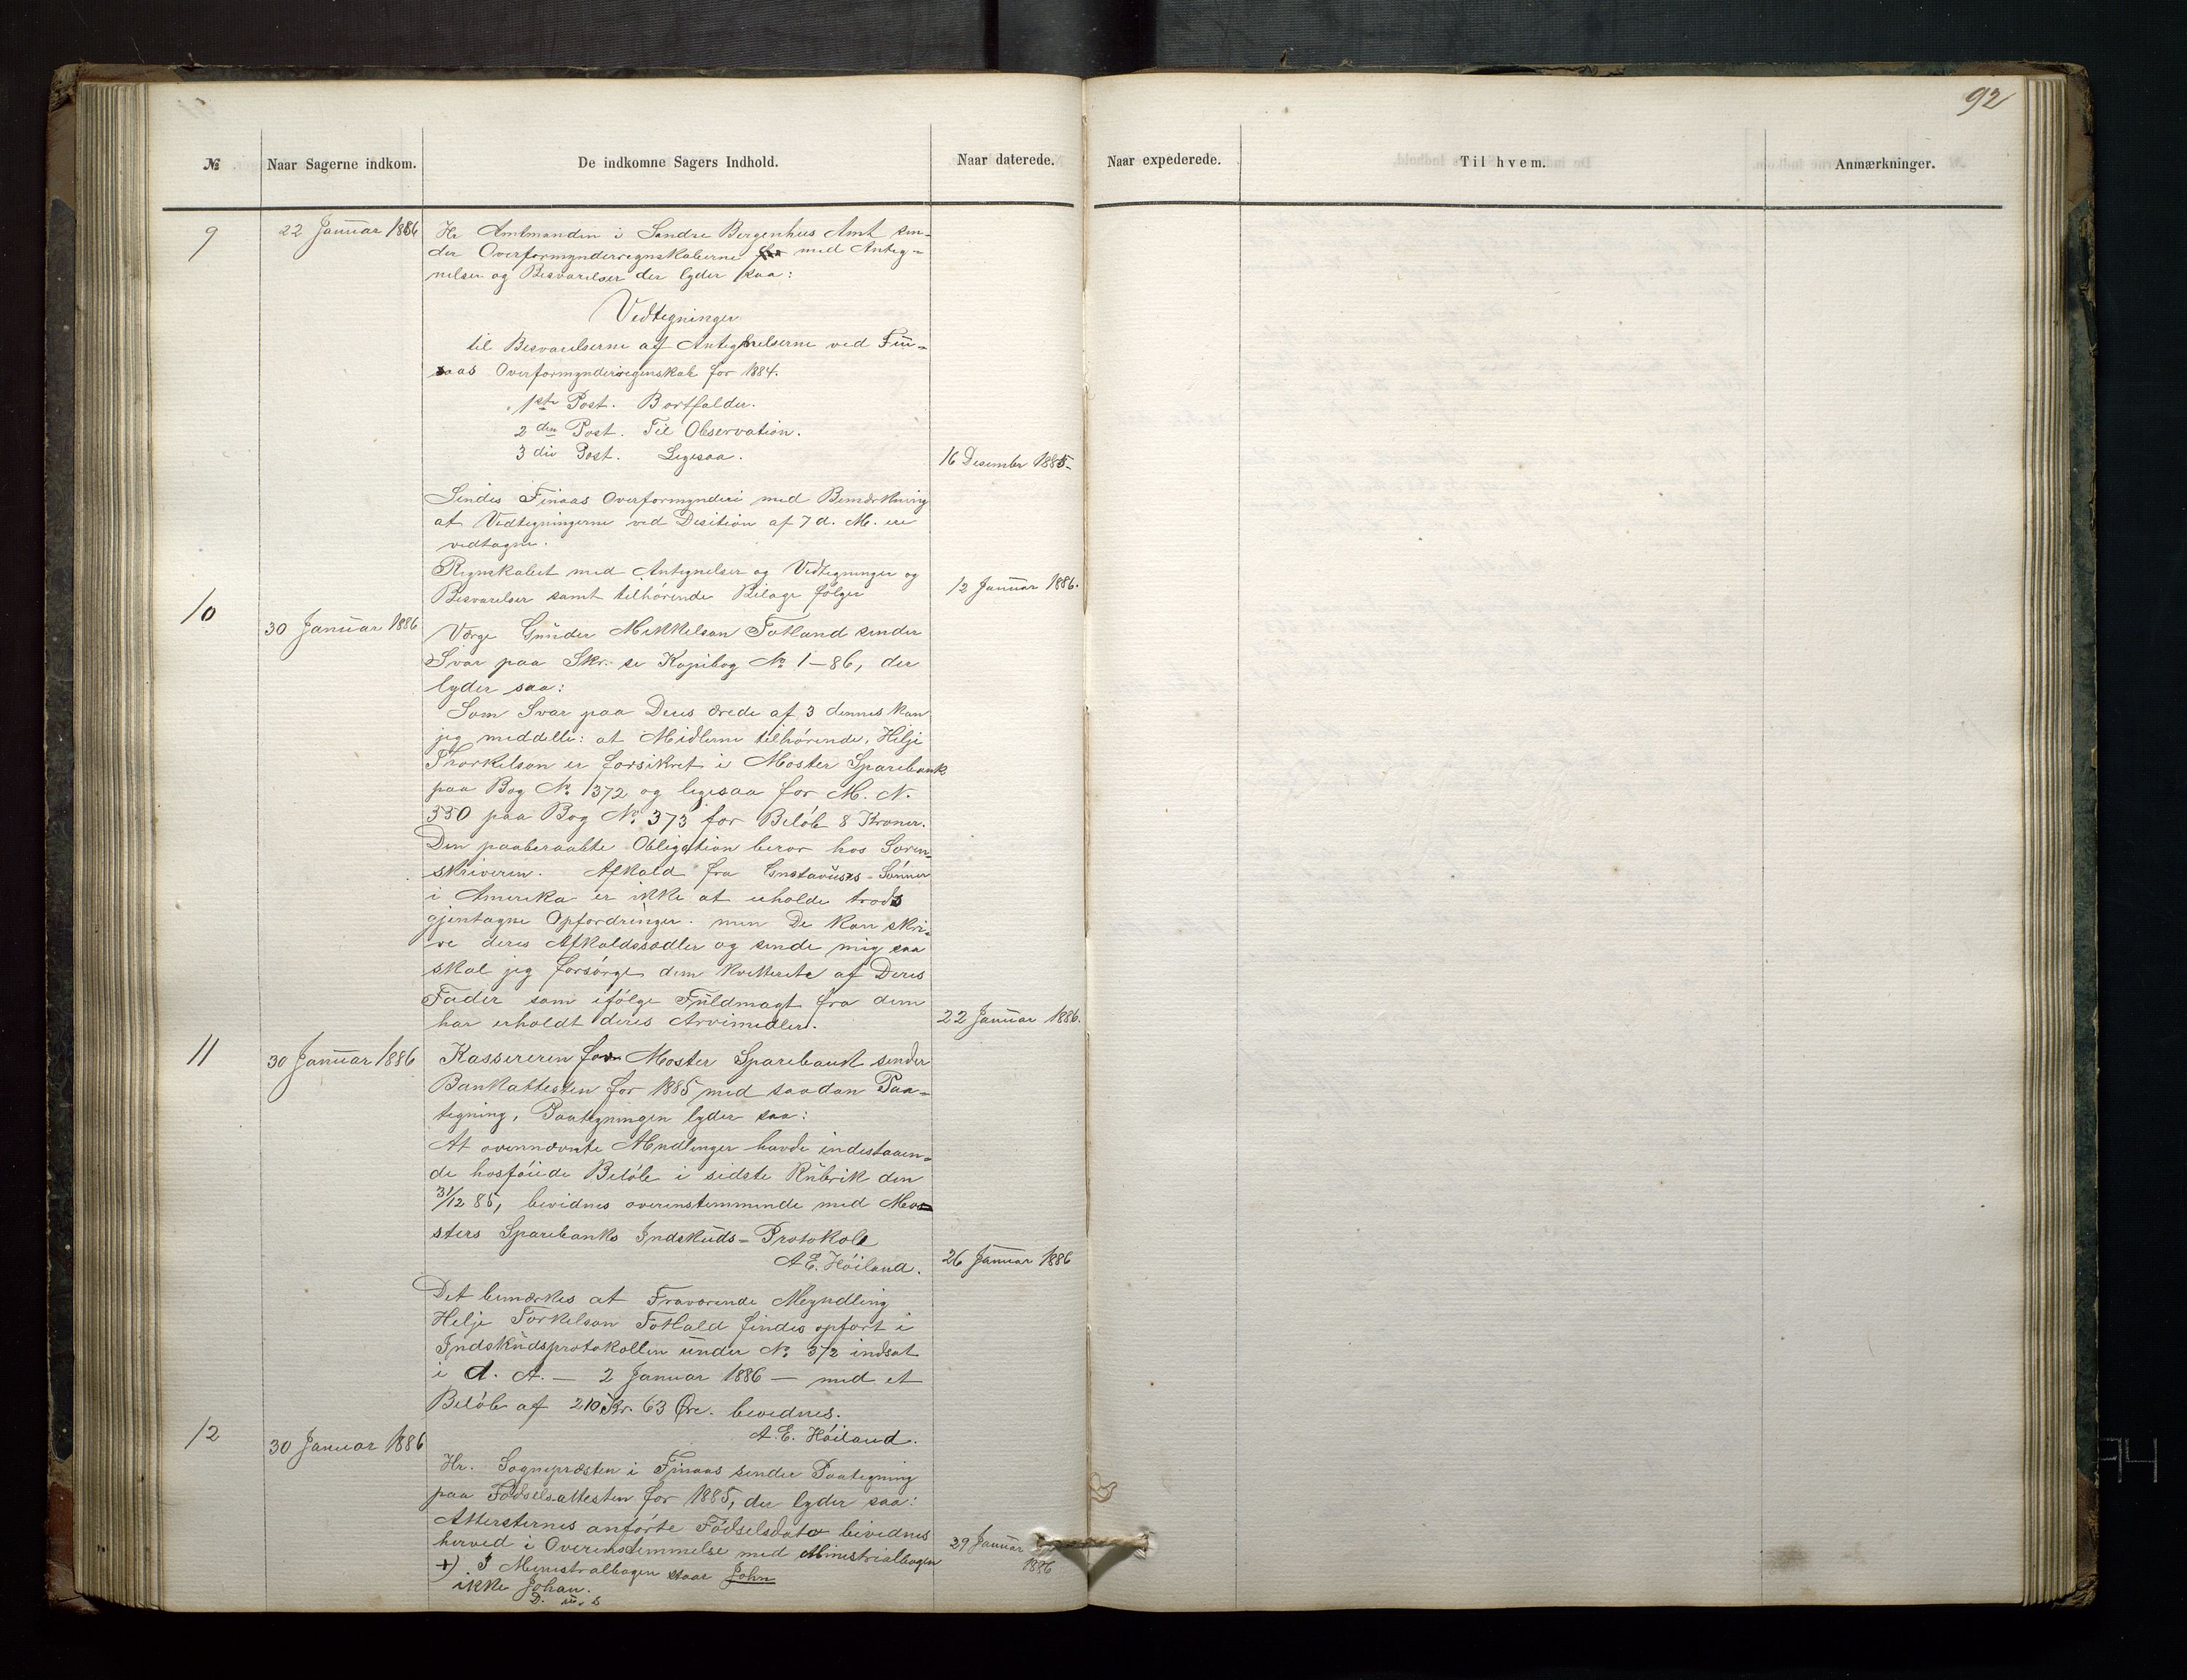 92
№ Naar Sagerne indkom. De indkomne Sagers Indhold. Naar daterede. Naar expederede. Til hvem. Anmærkninger.
9 22 Januar 1886 Hr Amtmanden i Søndre Bergenhus Amt sen-
der Overformynderregnskaberne med Anteg-
nelser og Besvarelser der lyder saa:
Vedtegninger
til Besvarelserne af Antegnelserne ved Fin-
saas Overformynderregenskab for 1884.
1ste Post. Bortfalder.
2den Post. Til Observation.
3die Post. Ligesaa. 16 Desember 1885.
Sendes Finaas Overformynderi med Bemærkning
at Vedtegningerne ved Desition af 7 d. M. ere
vedtagne.
Regnskabet med Antegnelser og Vedtegninger og
Besvarelser samt tilhörende Bilage fölger 12 Januar 1886.
10 30 Januar 1886 Værge Gunder Mikkelsan Totland sender
Svar paa Skr. se Kopibog № 1-86, der
lyder saa:
Som Svar paa Deres ærede af 3 dennes kan
jeg meddelle: at Midlerne tilhörende, Helje
Thorkelson er forsikret i Moster Sparebank
paa Bog № 1372 og ligesaa for M. N.
350 paa Bog № 373 for Belöb 8 Kroner.
Den paaberaabte Obligation beror hos Soren-
skriveren. Afkald fra Gustavuses Sönner
i Amerika er ikke at erholde trods
gjentagne Opfordringer. men De kan skri-
ve deres Afkaldssedler og sende mig saa
skal jeg forsörge dem kvitterete af Deres
Fader som ifölge Fuldmagt fra dem
har erholdt deres Arvemidler. 22 Januar 1886.
11 30 Januar 1886 Kassereren for Moster Sparebank sender
Bankattesten for 1885 med saadan Paa-
tegning, Paategningen lyder saa:
At ovennævnte Myndlinger havde indestaaen-
de hosföiede Belöb i sidste Rubrik den
31/12 85, bevidnes overenstemmende med Mo-
sters Sparebanks Indskuds-Protokol
A E. Höiland. 26 Januar 1886
Det bemærkes at Fraværende Meyndling
Helje Torkelson Totland findes opfört i
Indskudsprotokollen under № 372 indsat
i d. A. — 2 Januar 1886 — med et
Belöb af 210 Kr. 63 Øre. bevidnes.
A. E. Höiland.
12 30 Januar 1886
Hr. Sognepræsten i Finaas sender Paategning
paa Fødselsattesten for 1885, der lyder saa:
Attersternes anförte Födselsdato bevidnes
herved i Overenstemmelse med Ministrialbogen 29 Januar
1886
+) I Menistralbogen staar John
ikke Johan.